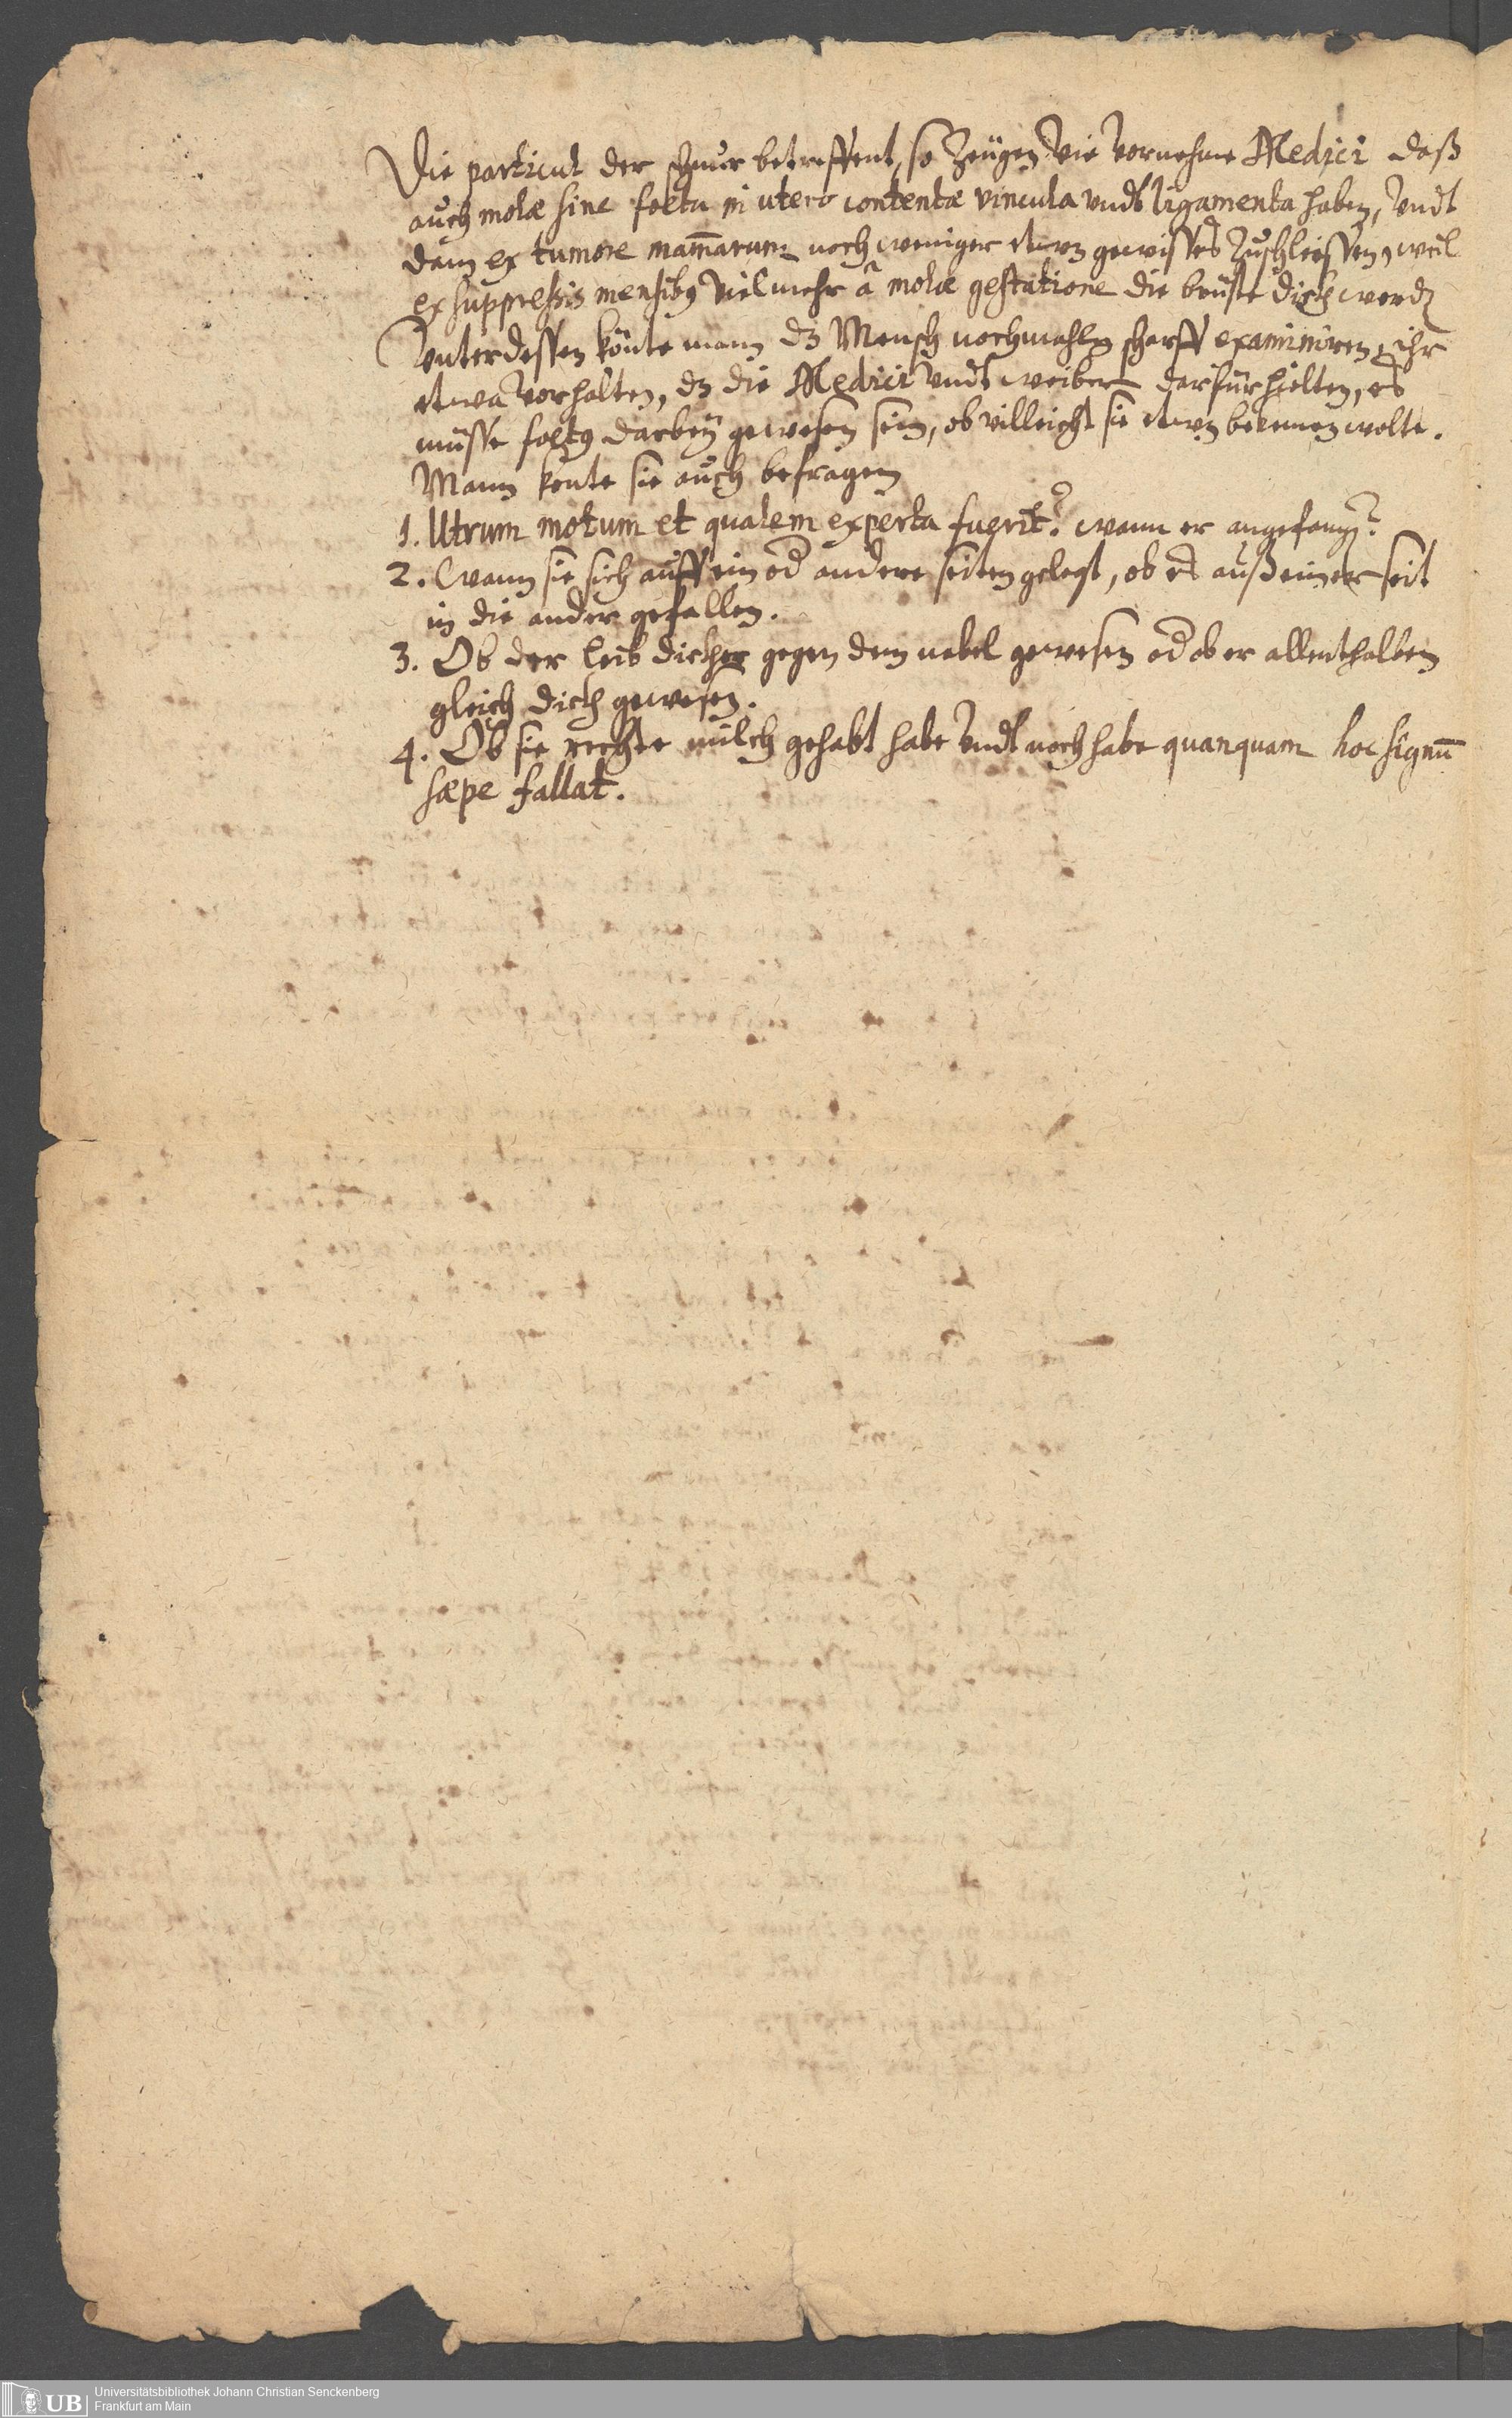 Die particul der schnur betreffent, so Zeügen die vornehme Medici daß
auch molæ sine foetu in utero contentæ vincula undt ligamenta haben, undt
dann ex tumore mam̄arum noch weniger etwas gewisses zuschliessen, weil
ex suppressis mensibꝰ viel mehr â molæ gestatione die brüste dick werdē
Unterdessen könte mann dz Mensch nochmahls scharff examiniren, ihr
etwa vorhalten, dz die Medici undt weiber darfür hielten, es
müsse foetꝰ darbeÿ gewesen sein, ob villeicht sie etwas bekennen wolte.
Mann konte sie auch befragen
1. Utrum motum et qualem experta fuerit? wann er angefangē?
2. Wann sie sich auff ein od andere seiten gelegt, ob es auß einer seit
in die ander gefallen.
3. Ob der leib dicker gegen dem nabel gewesen od ob er allenthalben
gleich dick gewesen.
4. Ob sie rechte milch gehabt habe undt noch habe quanquam hoc signū
sæpe fallat.
UB
Universitätsbibliothek Johann Christian Senckenberg
Frankfurt am Main